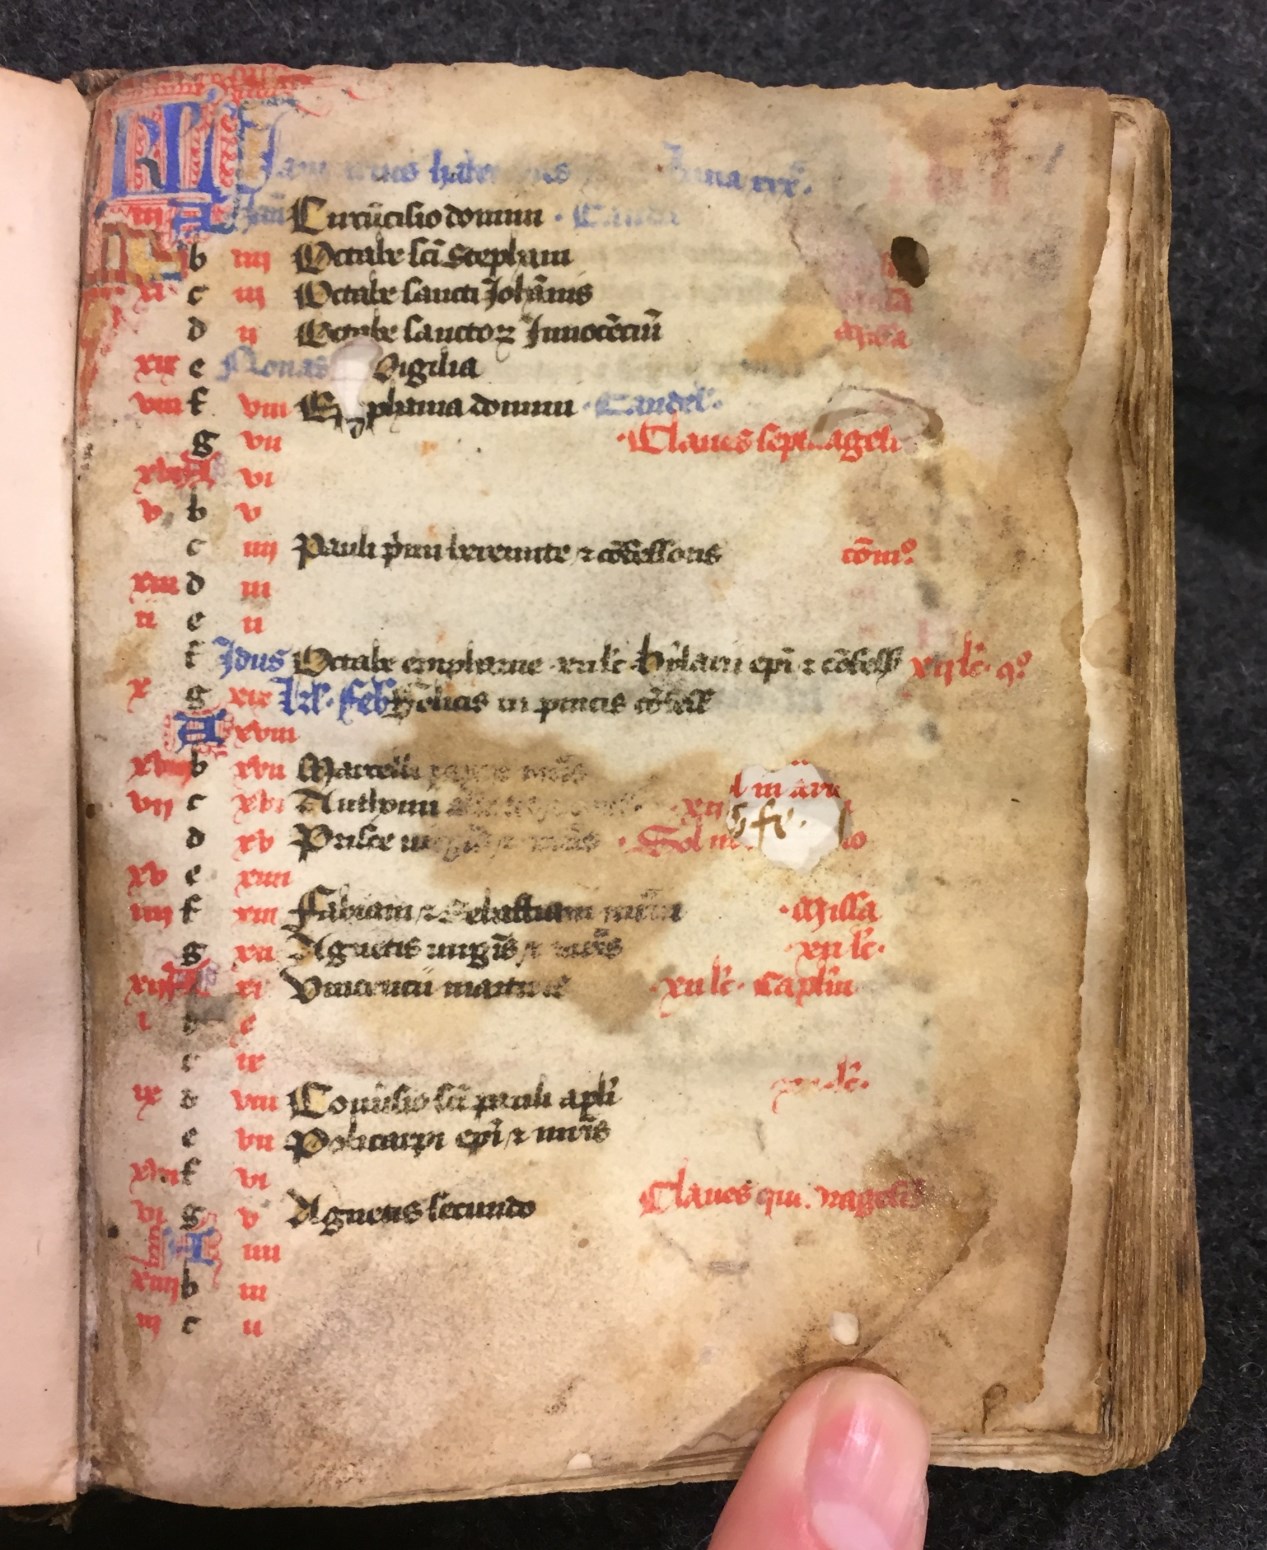 KL Januarius habet dies luna xxx.
iii A Jan Circūcisio domini · Candele
b iiii Octabe sci Stephani
xi c iii Octabe sancti Johānis
d ii Octabe sanctoꝝ Innocēciū missa
xix e Nonas Vigilia
viii f viii Epyphania domini · Candele·
g vii ·Claues septuagesi
xvi A vi
v b v
c iiii Pauli p̄mi heremite ⁊ cōfessoris cōmo
xiii d iii
ii e ii
f Jdus Octabe epiphanie · xii lc̄ · Hylarii epī ⁊ cōfess xii lc̄ · 9o
x g xix kl· feb Felicis in pincis cōfess
A xviii
xviii b xvii Marcelli
vii c xvi Anthonii xii l iii aru
d xv Prisce · Sol in
xv e xiiii
iiii f xiii Fabiani ⁊ Sebastiani · Missa
g xii Agnetis uirgīs ⁊ xii lc̄·
xii A xi Vincencii martiris · xii lc̄ · Cap
i b x
c ix
ix d viii Conūsio sci pauli apli xii lc̄·
e vii Policarpi epī ⁊ mr̄is
xvii f vi
vi g v Agnetis secundo Claues quadragesis
A iiii
xiiii b iii
iii c ii